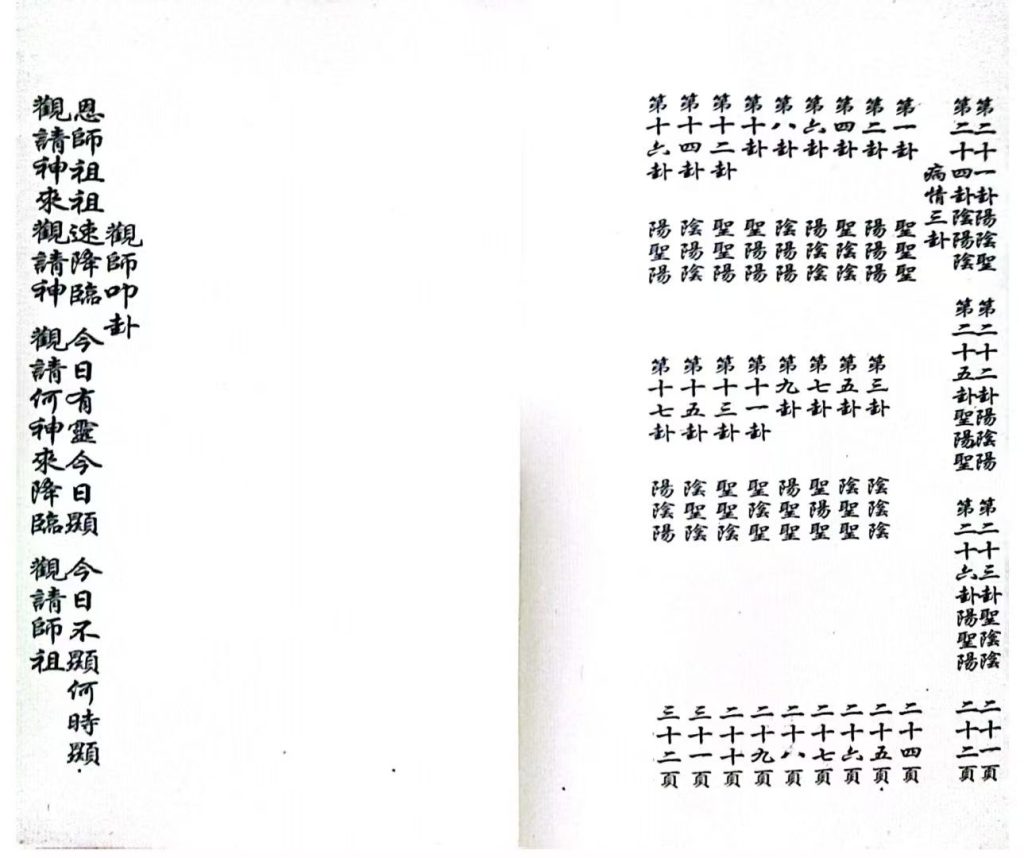 第二十一卦陽陰聖 第二十二卦陽陰陽 第二十三卦聖陰陰 二十一頁
第二十四卦陰陽陰 第二十五卦聖陽聖 第二十六卦陽聖陽 二十二頁
病情三卦
第一卦 聖聖聖 二十四頁
第二卦 陽陽陽 第三卦 陰陰陰 二十五頁
第四卦 聖陰陰 第五卦 陰聖聖 二十六頁
第六卦 陽陽陰 第七卦 聖陽聖 二十七頁
第八卦 陰陽陽 第九卦 陽聖聖 二十八頁
第十卦 聖陽陽 第十一卦 聖陰聖 二十九頁
第十二卦 聖聖陽 第十三卦 聖聖陰 二十十頁
第十四卦 陰陽陰 第十五卦 陰聖陰 三十一頁
第十六卦 陽聖陽 第十七卦 陽陰陽 三十二頁
觀師叩卦
恩師祖祖速降臨 今日有靈今日顯 今日不顯何時顯
觀請神來觀請神 觀請何神來降臨 觀請師祖